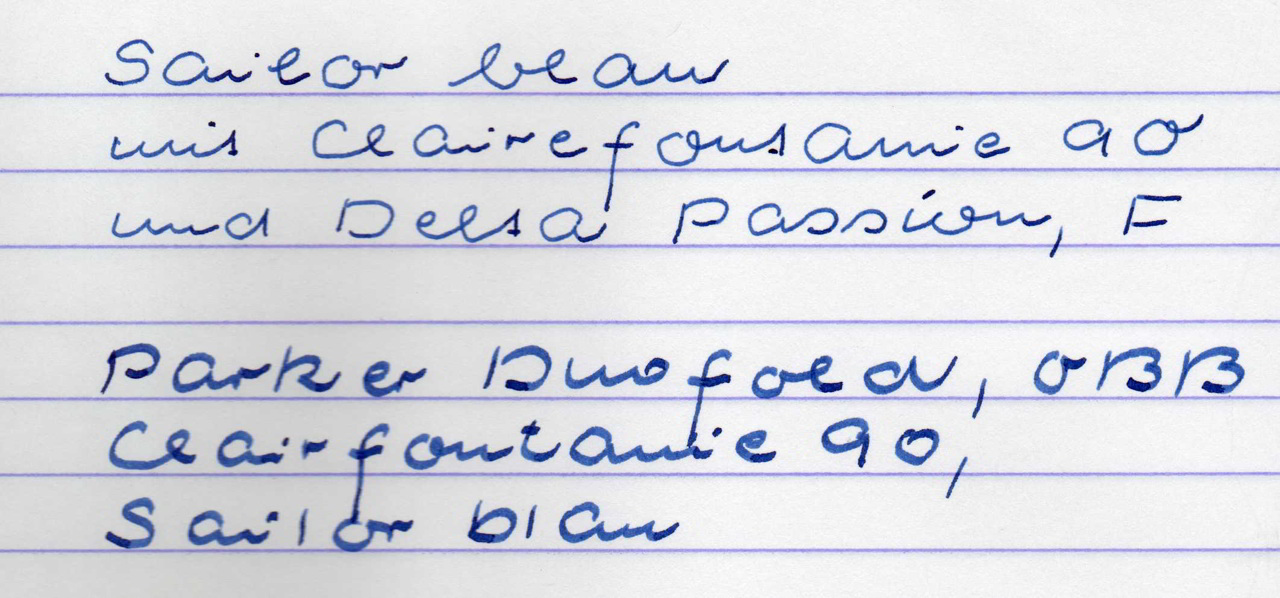 Sailor blau
mit Clairefontaine 90
und Delta Passion, F
Parker Duofold, OBB
Clairfontaine 90,
Sailor blau